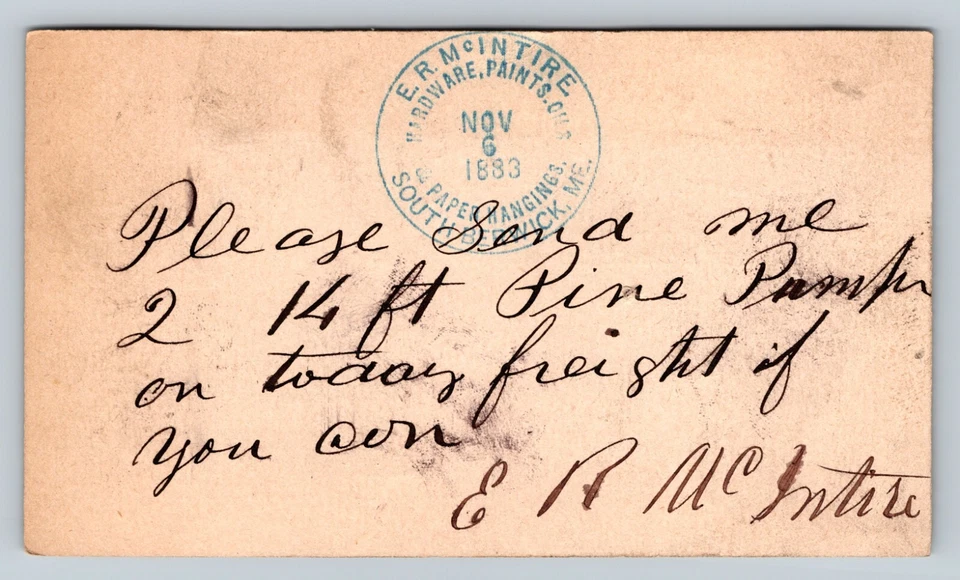 E. R. McINTIRE.
HARDWARE, PAINTS, OILS
NOV
6
1883
& PAPER HANGINGS,
SOUTH BERWICK, ME.
Please Send me
2 14 ft Pine Pumps
on today freight if
you can
E R McIntire